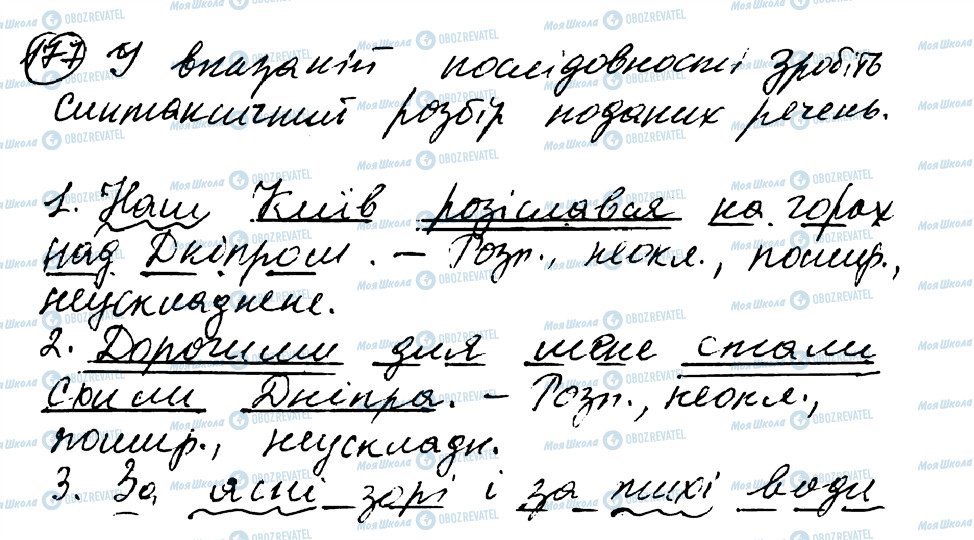 177 У вказаній послідовності зробіть
синтаксичний розбір поданих речень.
1. Наш Київ розіслався на горах
над Дніпром. – Розп., неокл., пошир.,
неускладнене.
2. Дорогими для мене стали
схили Дніпра. – Розп., неокл.,
пошир., неускладн.
3. За ясні зорі і за тихі води